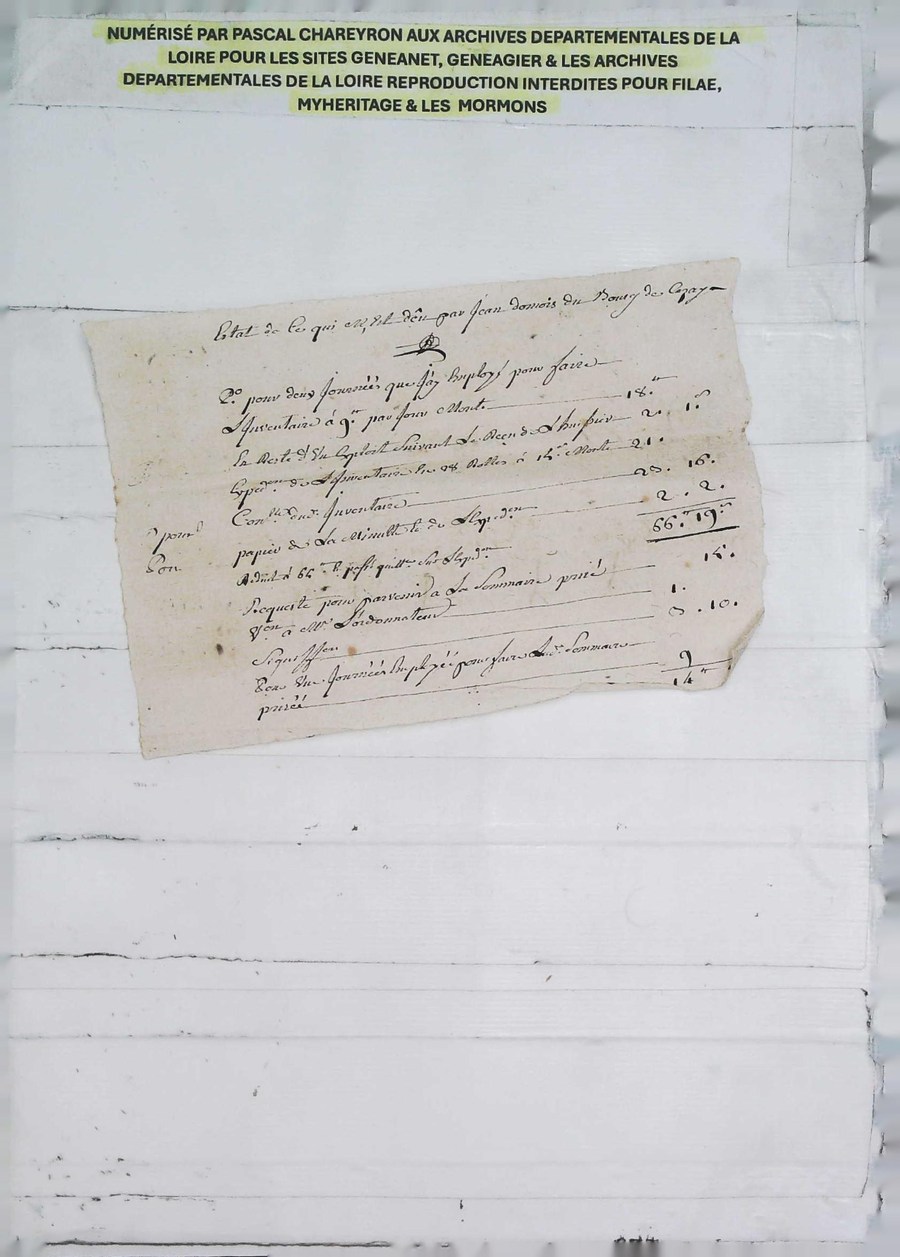 NUMÉRISÉ PAR PASCAL CHAREYRON AUX ARCHIVES DEPARTEMENTALES DE LA
LOIRE POUR LES SITES GENEANET, GENEAGIER & LES ARCHIVES
DEPARTEMENTALES DE LA LOIRE REPRODUCTION INTERDITES POUR FILAE,
MYHERITAGE & LES MORMONS
Estat de Ce qui M'Est dêu par Jean domois du Bourg de
P.o pour deux Journées que J'ay Employé pour faire
L'Inventaire à 9.tt par Jour Monte 18.tt
En Reste d'Un Exploit Suivant Le Reçu de L'huissier 2. 1.s
de L'Inventaire 28 Rolles à 15.s Monte 21.
Con.lle dud. Inventaire 23. 16.
papier de La Minutte & de L'Exped.on 2. 2.
66.tt 19.s
Reduit à 64.tt
Requeste pour parvenir a La Sommaire prisé 15.
à Mr L'ordonnateur 1.
3. 10.
Une Journée Employée pour faire Lad. Sommaire
prisée 9
14.tt